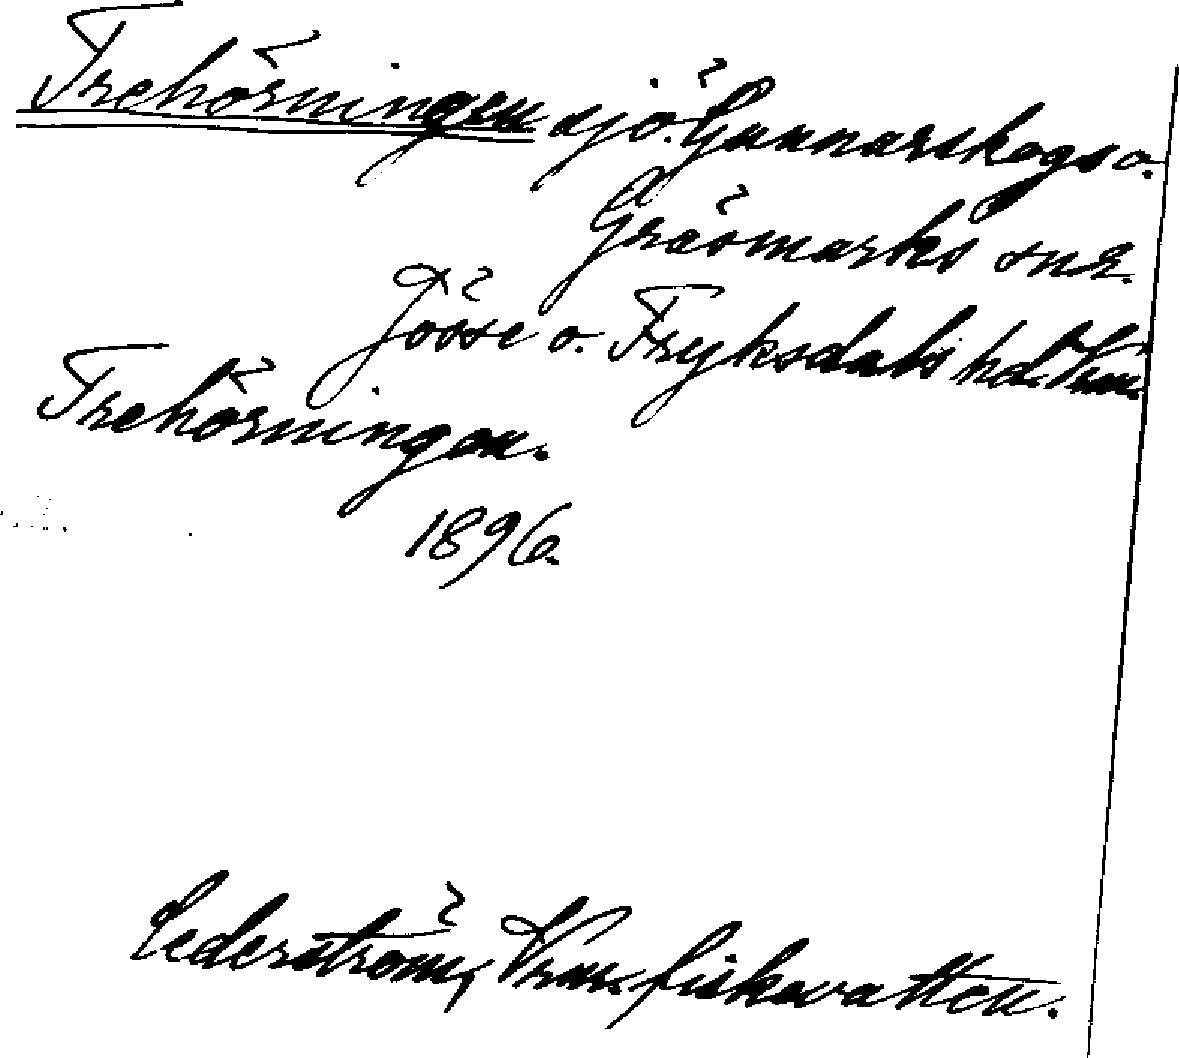 Trehörningen sjö. Gunnarskogs o.
Gräsmarks snr.
Jösse o. Fryksdals hd. Vrm.
Trehörningen.
1896.
Cederström, Vrm. fiskevatten.